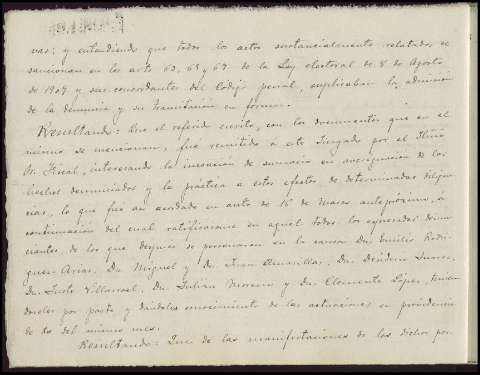 vas; y entendiendo que todos los actos sustancialmente relatados se
sancionan en los arts 63, 65 y 67 de la Ley electoral de 8 de Agosto
de 1907 y sus concordantes del Código penal, suplicaban la admisión
de la denuncia y su tramitación en forma.
Resultando: Que el referido escrito, con los documentos que en el
mismo se mencionan, fué remitido a este Juzgado por el Iltmo
Sr. Fiscal, interesando la incoación de sumario en averiguación de los
hechos denunciados y la práctica a estos efectos de determinadas diligen
cias, lo que fué así acordado en auto de 16 de Marzo antepróximo, a
continuación del cual ratificáronse en aquel todos los expresados denun
ciantes, de los que después se personaron en la causa Dn. Emilio Rodri
guez Arias, Dn Miguel y Dn. Juan Amarillas, Dn. Desiderio Suarez,
Dn. Justo Villarroel, Dn. Julian Moreno y Dn. Clemente López, tenien
doseles por parte y dándoles conocimiento de las actuaciones en providencia
de dos del mismo mes.
Resultando: Que de las manifestaciones de los dichos por